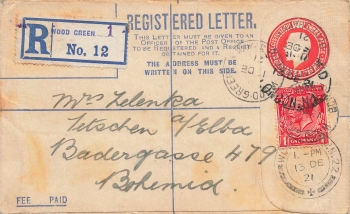 REGISTERED LETTER.
THIS LETTER MUST BE GIVEN TO AN
OFFICER OF THE POST OFFICE
TO BE REGISTERED AND A RECEIPT
OBTAINED FOR IT.
THE ADDRESS MUST BE
WRITTEN ON THIS SIDE.
R
WOOD GREEN. 1
No. 12
Mrs Zelenka
Tetschen a/Elba
Badergasse 479
Bohemia
FEE PAID
1 - PM
13 DE
21
N.22